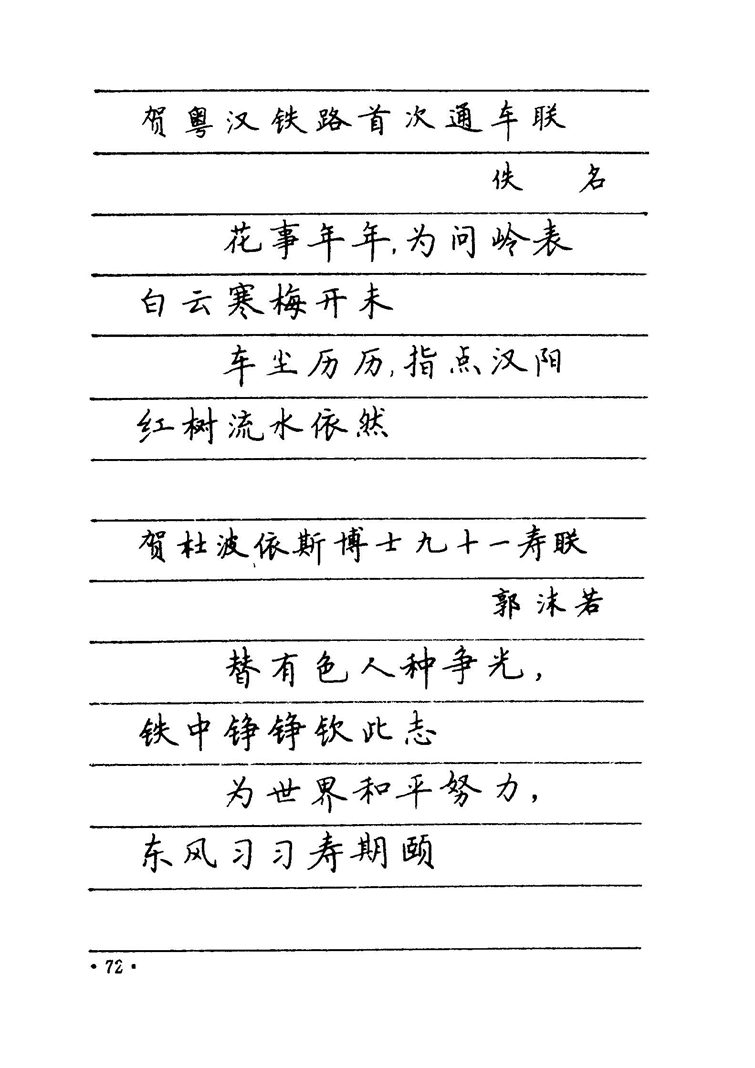 贺粤汉铁路首次通车联
佚 名
花事年年,为问岭表
白云寒梅开未
车尘历历,指点汉阳
红树流水依然
贺杜波依斯博士九十一寿联
郭沫若
替有色人种争光,
铁中铮铮钦此志
为世界和平努力,
东风习习寿期颐
·72·